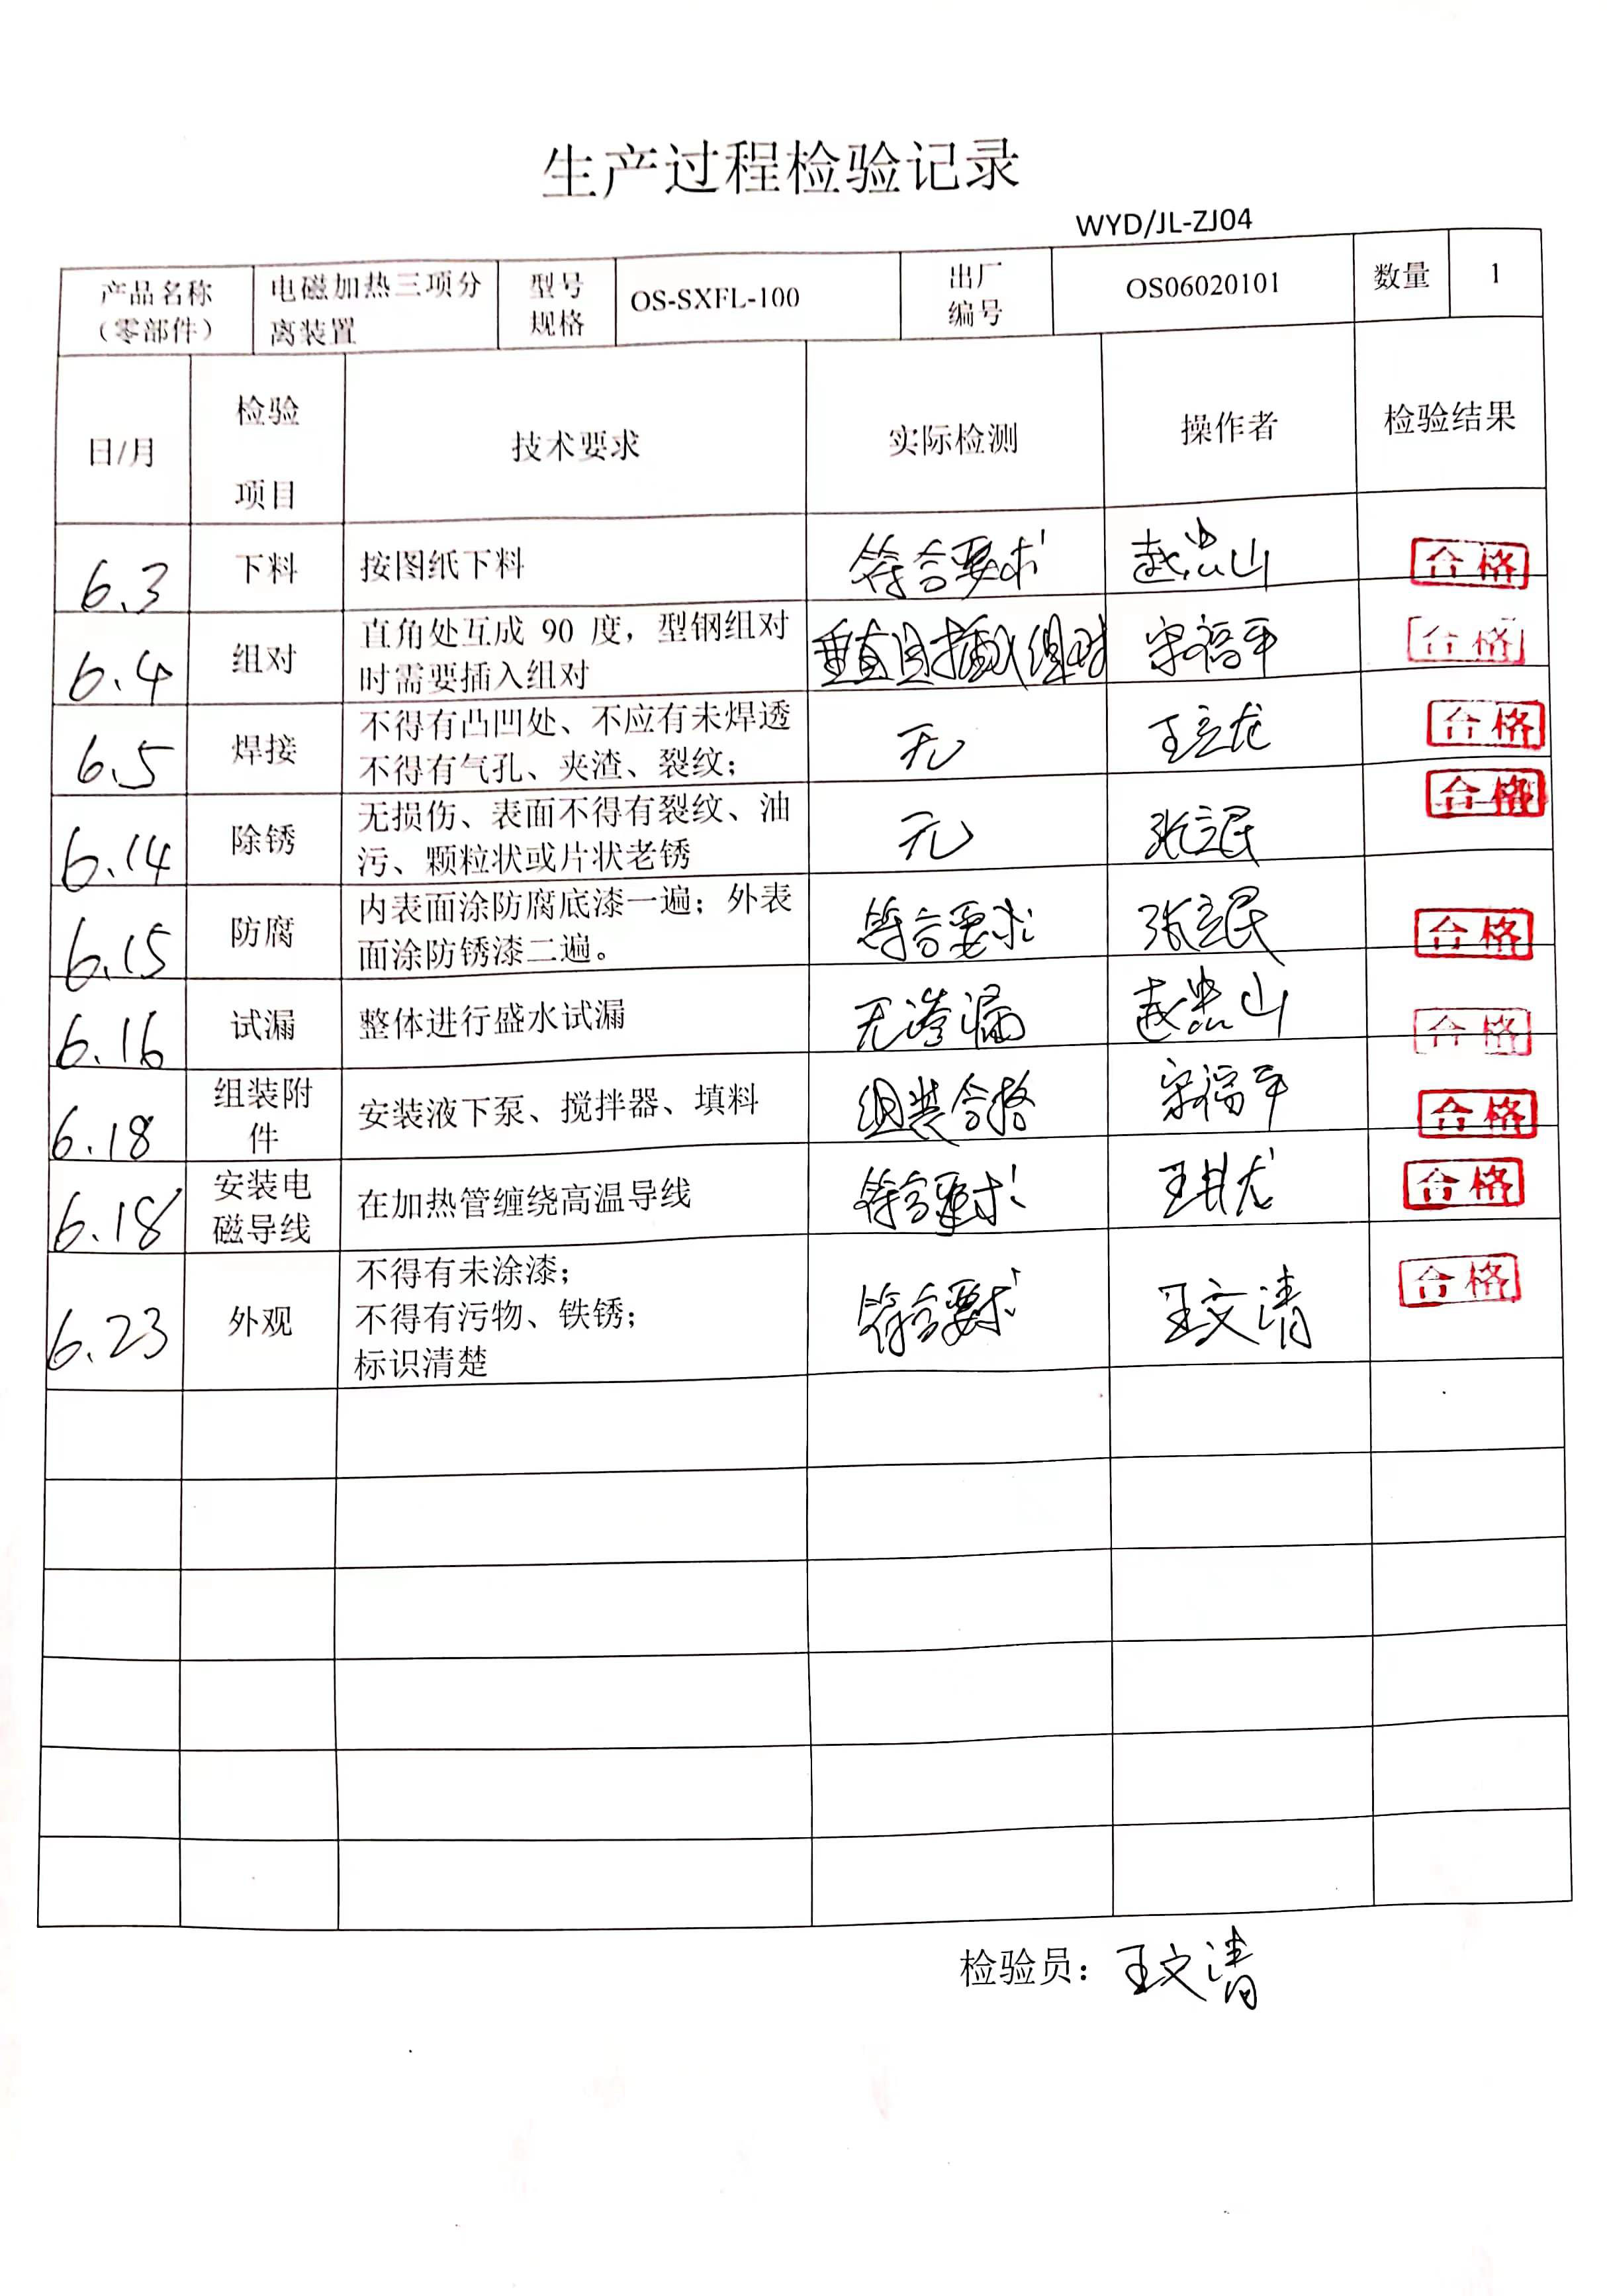 生产过程检验记录
WYD/JL-ZJ04
产品名称
（零部件）
电磁加热三项分
离装置
型号
规格
OS-SXFL-100
出厂
编号
OS06020101
数量
1
日/月
检验
项目
技术要求
实际检测
操作者
检验结果
6.3
下料
按图纸下料
符合要求
赵忠山
合格
6.4
组对
直角处互成 90 度，型钢组对
时需要插入组对
垂直且插入组对
宋福平
合格
6.5
焊接
不得有凸凹处、不应有未焊透
不得有气孔、夹渣、裂纹；
无
王立龙
合格
6.14
除锈
无损伤、表面不得有裂纹、油
污、颗粒状或片状老锈
无
张立民
合格
6.15
防腐
内表面涂防腐底漆一遍；外表
面涂防锈漆二遍。
符合要求
张立民
合格
6.16
试漏
整体进行盛水试漏
无渗漏
赵忠山
合格
6.18
组装附
件
安装液下泵、搅拌器、填料
组装合格
宋福平
合格
6.18
安装电
磁导线
在加热管缠绕高温导线
符合要求
合格
6.23
外观
不得有未涂漆；
不得有污物、铁锈；
标识清楚
符合要求
王文清
合格
检验员：王文清